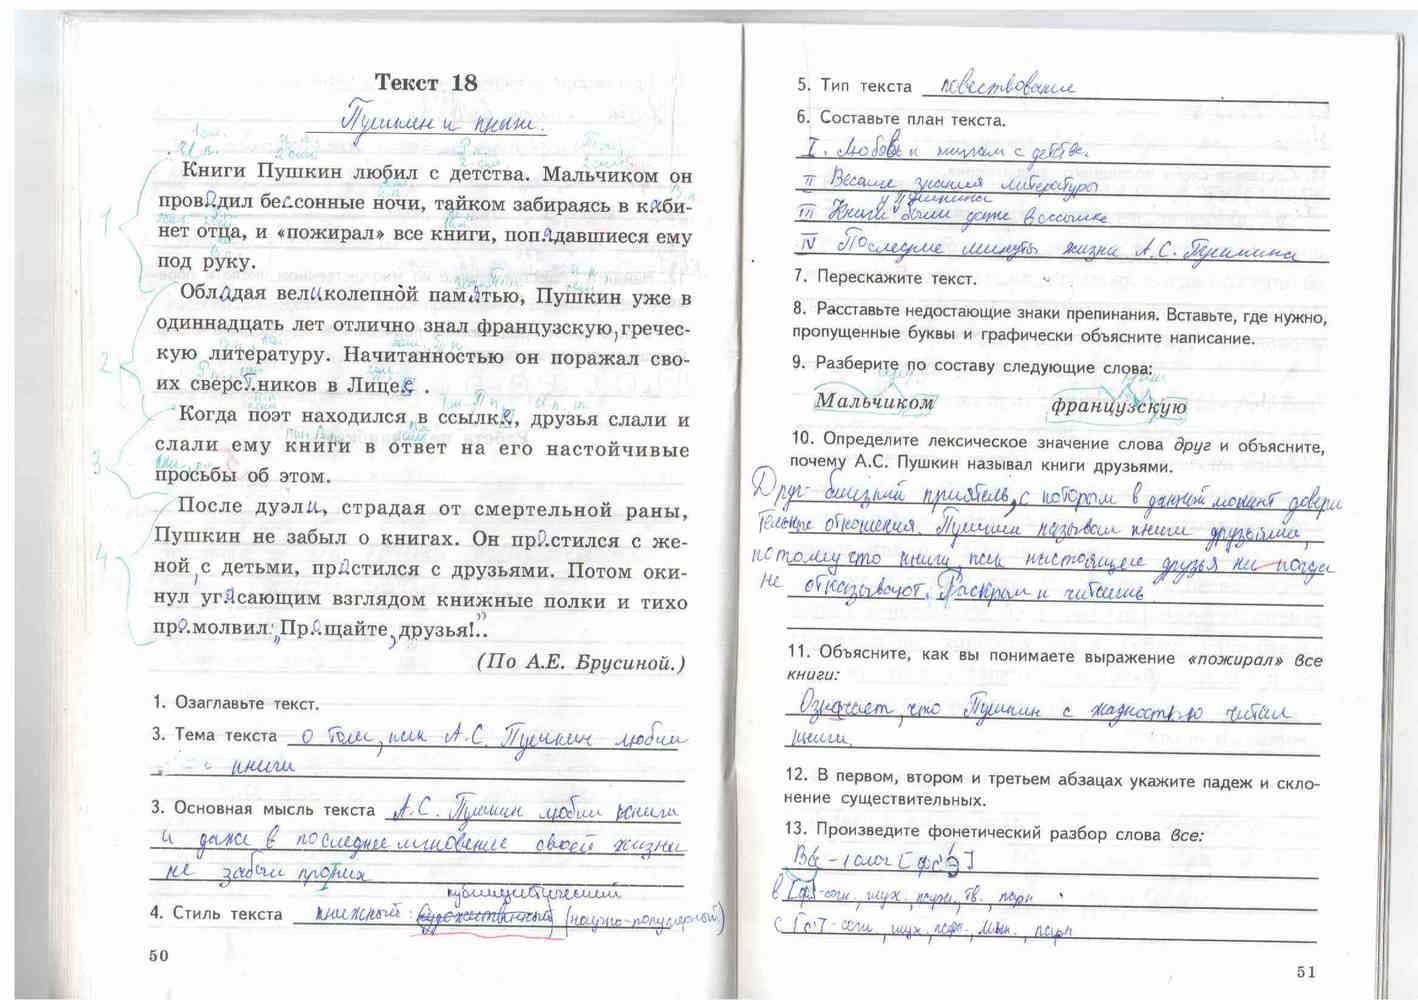 Текст 18
Пушкин и книги.
Книги Пушкин любил с детства. Мальчиком он
проводил бессонные ночи, тайком забираясь в каби-
нет отца, и «пожирал» все книги, попадавшиеся ему
под руку.
Обладая великолепной памятью, Пушкин уже в
одиннадцать лет отлично знал французскую, гречес-
кую литературу. Начитанностью он поражал сво-
их сверстников в Лицее .
Когда поэт находился в ссылке, друзья слали и
слали ему книги в ответ на его настойчивые
просьбы об этом.
После дуэли, страдая от смертельной раны,
Пушкин не забыл о книгах. Он простился с же-
ной, с детьми, простился с друзьями. Потом оки-
нул угасающим взглядом книжные полки и тихо
промолвил: „Прощайте, друзья!..”
(По А.Е. Брусиной.)
1. Озаглавьте текст.
3. Тема текста о том, как А.С. Пушкин любил
книги
3. Основная мысль текста А.С. Пушкин любил книги
и даже в последнее мгновение своей жизни
не забыл про них
публицистический
4. Стиль текста книжный: художественный (научно-популярный)
50
5. Тип текста повествование
6. Составьте план текста.
I. Любовь к книгам с детства.
II знания литературы
у Пушкина
III Книги были даже в ссылке
IV Последние минуты жизни А.С. Пушкина
7. Перескажите текст.
8. Расставьте недостающие знаки препинания. Вставьте, где нужно,
пропущенные буквы и графически объясните написание.
9. Разберите по составу следующие слова:
Мальчиком французскую
10. Определите лексическое значение слова друг и объясните,
почему А.С. Пушкин называл книги друзьями.
Друг - близкий приятель, с которым в данный момент довери
тельные отношения. Пушкин называл книги друзьями,
потому что книги, как настоящие друзья ни когда
не отказывают. Раскрыл и читаешь
11. Объясните, как вы понимаете выражение «пожирал» все
книги:
Означает, что Пушкин с жадностью читал
книги.
12. В первом, втором и третьем абзацах укажите падеж и скло-
нение существительных.
13. Произведите фонетический разбор слова все:
Все - 1 слог [фс'э]
в [ф] - согл, глух, парн, тв., парн
с [с'] - согл, глух, парн., мягк., парн
51
1
2
3
4